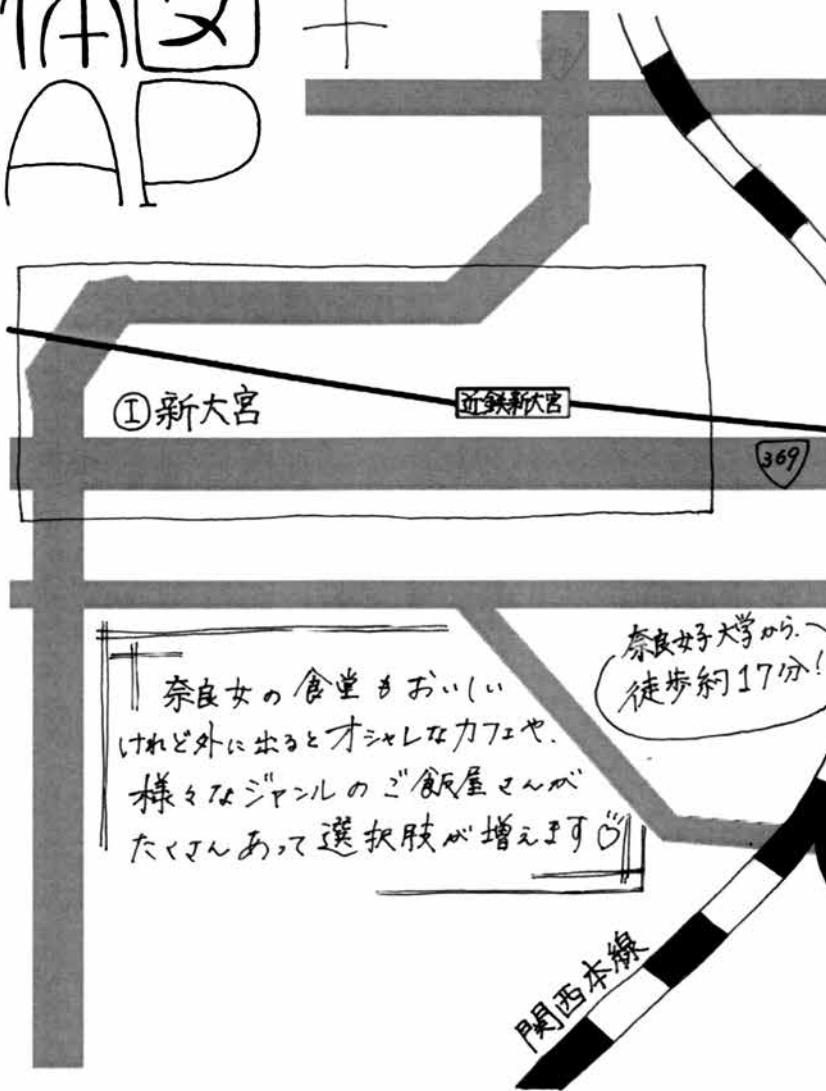 AP
①新大宮
近鉄新大宮
369
奈良女子大学から
徒歩約17分!
奈良女の食堂もおいしい
けれど外に出るとオシャレなカフェや、
様々なジャンルのご飯屋さんが
たくさんあって選択肢が増えます♡
関西本線